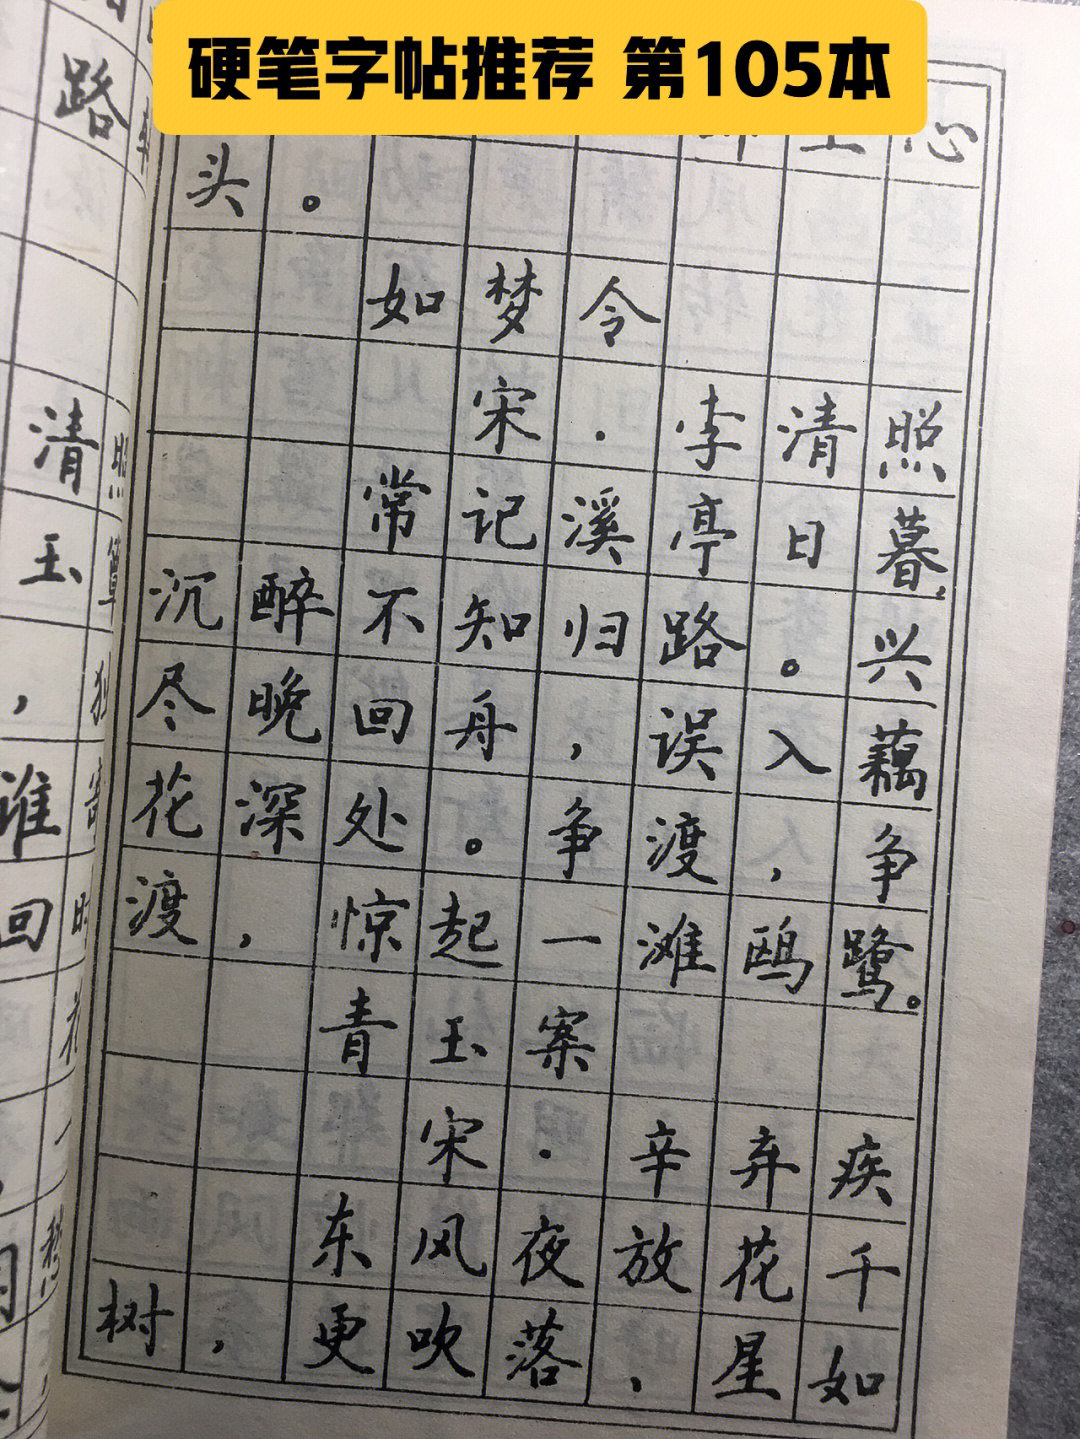 硬笔字帖推荐 第105本
上心
头。
如梦令
宋·李清照
常记溪亭日暮,
沉醉不知归路。兴
尽晚回舟,误入藕
花深处。争渡,争
渡,惊起一滩鸥鹭。
青玉案
宋·辛弃疾
东风夜放花千
树,更吹落、星如
路
清
玉
,
谁
回